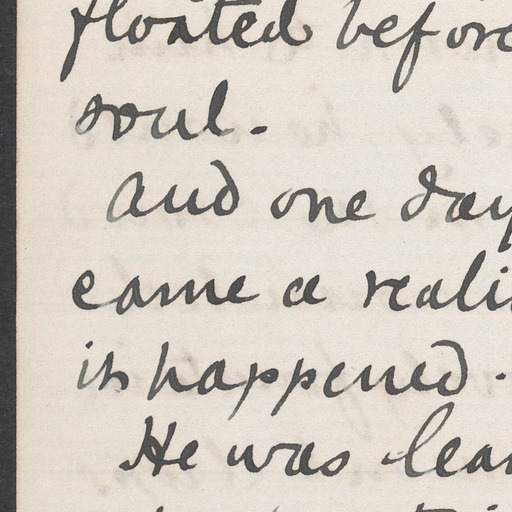 floated before
soul.
And one day
came a reali
it happened.
He was lear